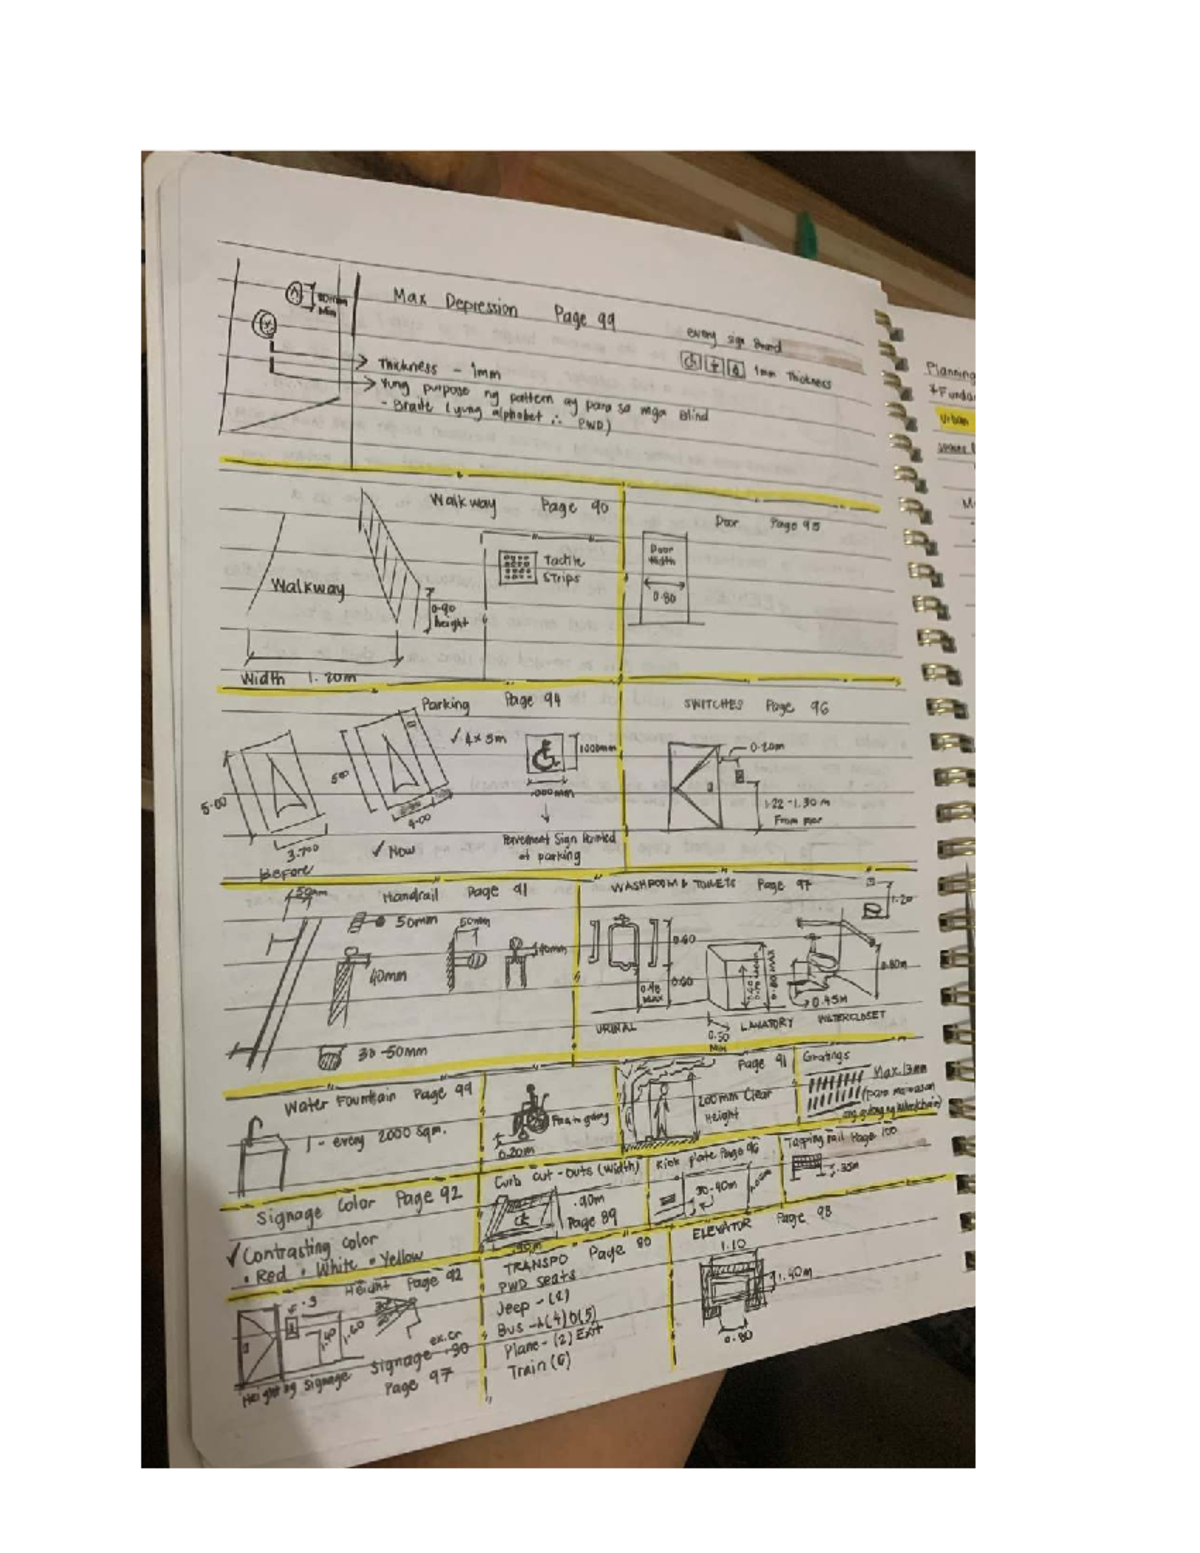 Max Depression Page 99
Min
every sign Board
1mm Thickness
Thickness - 1mm
Yung purpose ng pattern ay para sa mga Blind
- Braile (yung alphabet ∴ PWD)
Walkway Page 90
Walkway
0.90
height
Width 1.20m
Tactile
Strips
Door Page 95
Door
Width
0.80
Parking Page 94
5.00
3.700
Before
5.00
4.00
✓ Now
✓ 4x5m
1000mm
1000mm
Pavement Sign Painted
at parking
SWITCHES Page 96
0.20m
1.22-1.30 m
From floor
Handrail Page 91
50mm
50mm
50mm
40mm
40mm
30-50mm
WASHROOM & TOILETS Page 97
0.60
0.60
0.48
MAX
URINAL
0.80 MAX
0.50
Min
LAVATORY
1.20
0.80m
0.45m
WATERCLOSET
Water Fountain Page 99
1 - every 2000 sqm.
0.20m
Page 91
200mm Clear
Height
Gratings
Max 13mm
Signage Color Page 92
✓ Contrasting color
• Red • White • Yellow
Curb cut-outs (width)
.90m
Page 89
.90m
Kick plate Page 96
30-40m
Page 100
.35m
Height Page 92
.3
1.40
1.60
Height ng Signage
Signage
Page 97
TRANSPO Page 80
PWD seats
Jeep - (2)
Bus -A(4) O(5)
Plane- (2) Exit
Train (6)
ELEVATOR Page 93
1.10
1.40m
0.80
Planning
Urban